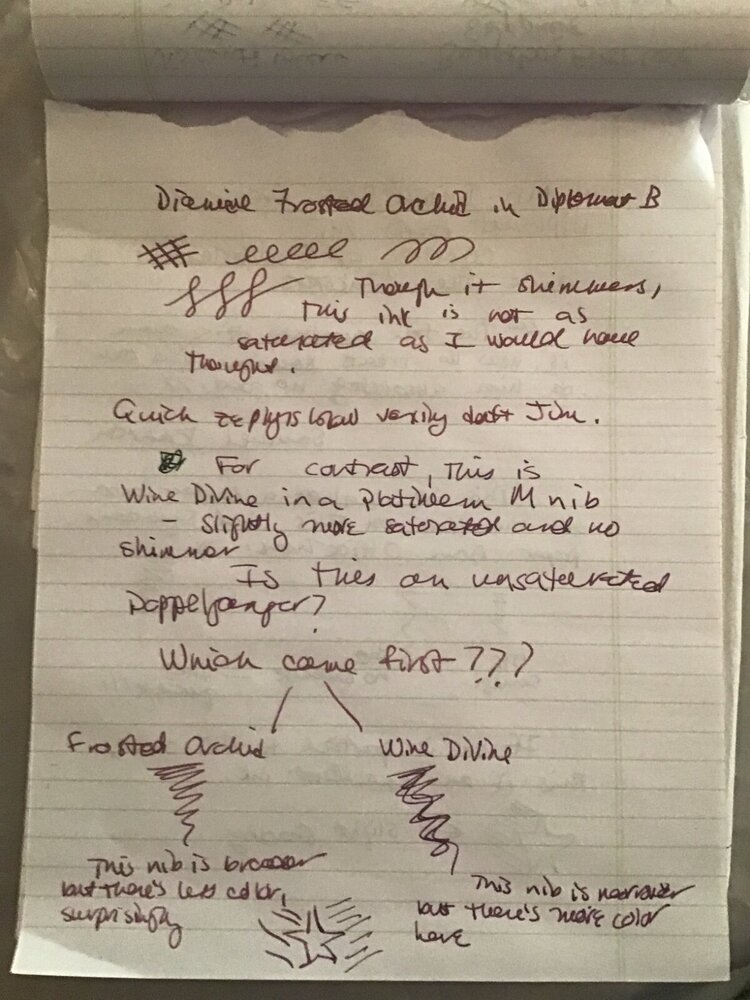 Diamine Frosted Orchid in Diplomat B
Though it shimmers,
this ink is not as
saturated as I would have
thought.
Quick zephyrs blow vexing daft Jim.
For contrast, this is
Wine Divine in a Platinum M nib
- slightly more saturated and no
shimmer
Is this an unsaturated
Doppelganger?
Which came first???
Frosted Orchid
Wine Divine
This nib is broader
but there's less color,
surprisingly
This nib is narrower
but there's more color
here